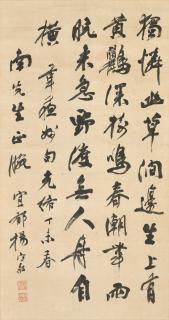 獨憐幽草澗邊生上有
黃鸝深樹鳴春潮帶雨
晚來急野渡無人舟自
橫 韋蘇州句光緒丁未春
南先生正腕 宜都楊守敬